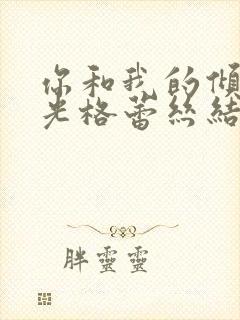 你和我的傾
光格蕾絲結
胖靈靈